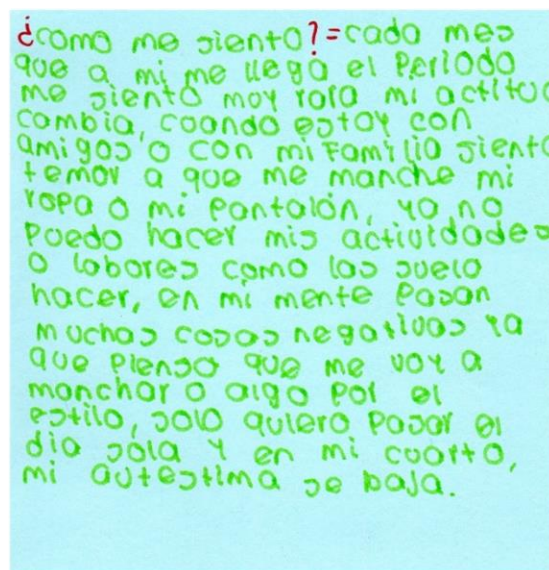 ¿como me siento?=cada mes
que a mi me llega el Periodo
me siento moy rara mi actitud
cambia, coando estoy con
amigos o con mi Familia siento
temor a que me manche mi
ropa o mi pantalón, yo no
Poedo hacer mis actividades
o labores como las suelo
hacer, en mi mente Pasan
muchas cosas negativas ya
que Pienso que me voy a
manchar o algo por el
estilo, solo quiero Pasar el
dia sola y en mi coarto,
mi autestima se baja.